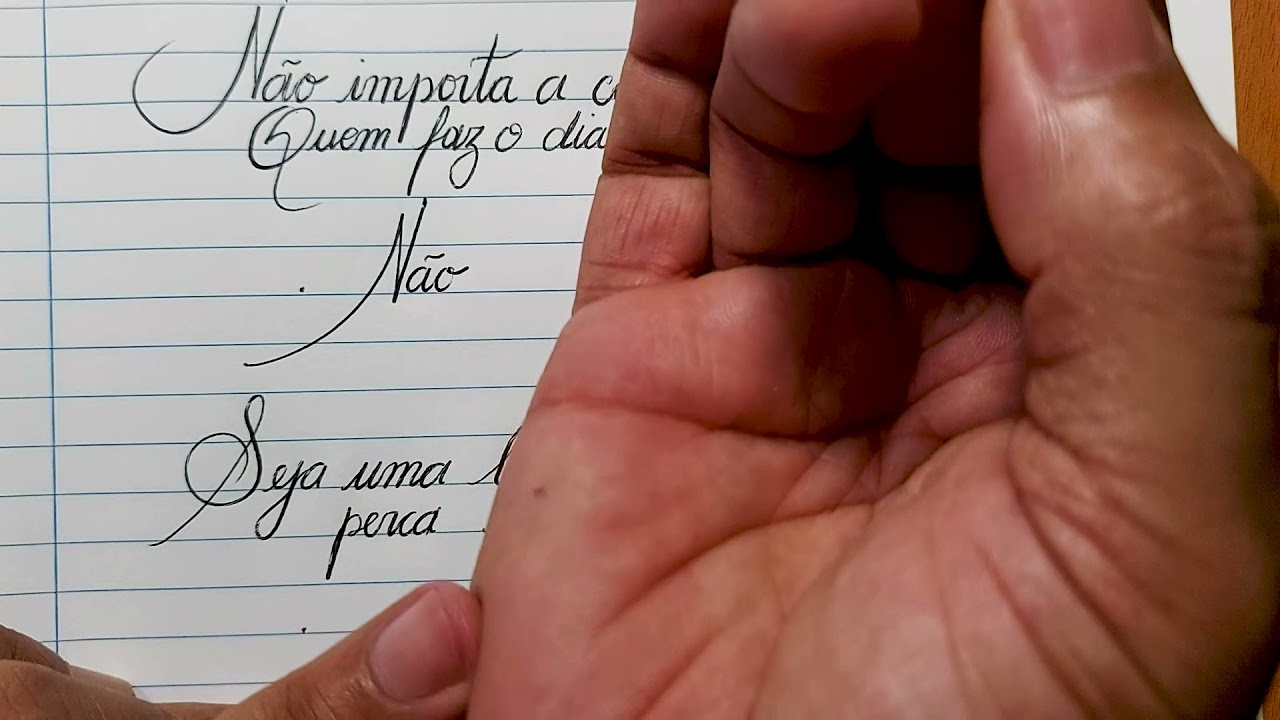 Não importa a
Quem faz o dia
Não
Seja uma
perca